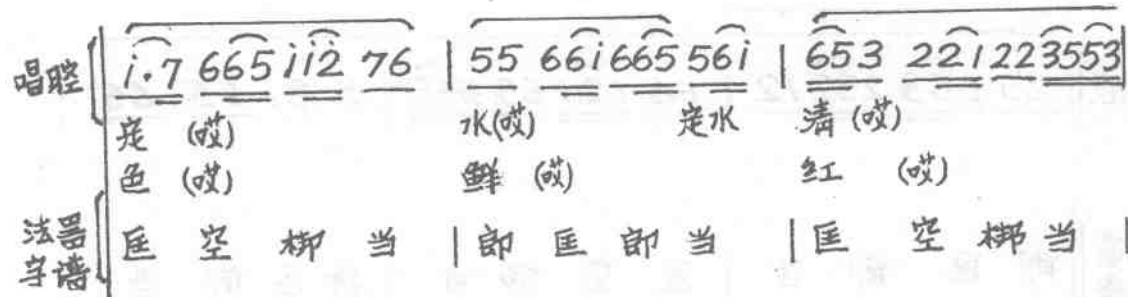 唱腔 i·7 665 ii2 76 | 55 66i 665 56i | 653 22i 22 3553 |
定 (哎) 水(哎) 定水 清 (哎)
色 (哎) 鲜 (哎) 红 (哎)
法器字谱 匡 空 梆 当 | 郎 匡 郎 当 | 匡 空 梆 当 |